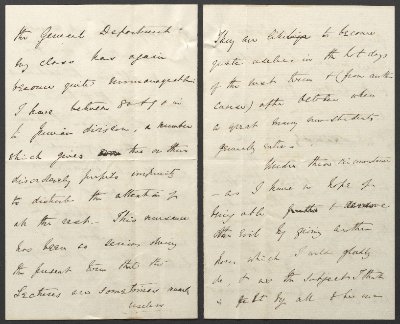 the General Department
my class has again
become quite unmanageable
I have between 80 & 90 in
Junior division, a number
which gives two or three
disorderly pupils
to disturb the attention of
all the rest. This nuisance
has been so serious during
the present term that the
Lectures are sometimes nearly
useless
They are likely to become
quite useless in the hot days
of the next term & (from another
cause) after October when
a great many new students
generally enter.
Under these circumstances
- as I have no hope of
being able to
the evil by giving another
hour, which I would gladly
do, as the subject I think
is by all